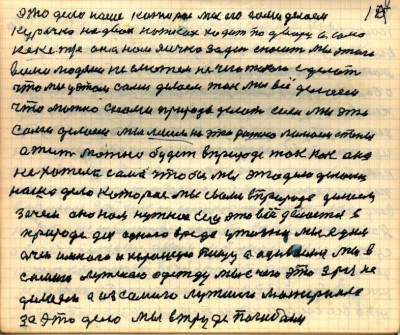 это дело наше которое мы его сами делаем 15
Курычка на двох ножках ходит по двору а сама
как она нам яичко задит сносит мы этого
всеми людями не сможем нечего такого сделать
что мы у этом сами делаем так мы всё делаем
что можно сказать природа делает сила мы это
сами делаем мы на это дело
а жить можно будет в природе так как она
не хотела сама чтобы мы это дело делали
наше дело которое мы своим в природе делаем
зачем оно нам нужно если это всё делается в
природе для одного вреда у жизни мы едим
очень много и хорошую пищу а одеваем мы в
самую лучшую одежду мы с чего это зря не
делаем а из самого лучшего материала
за это дело мы в труде погибаем